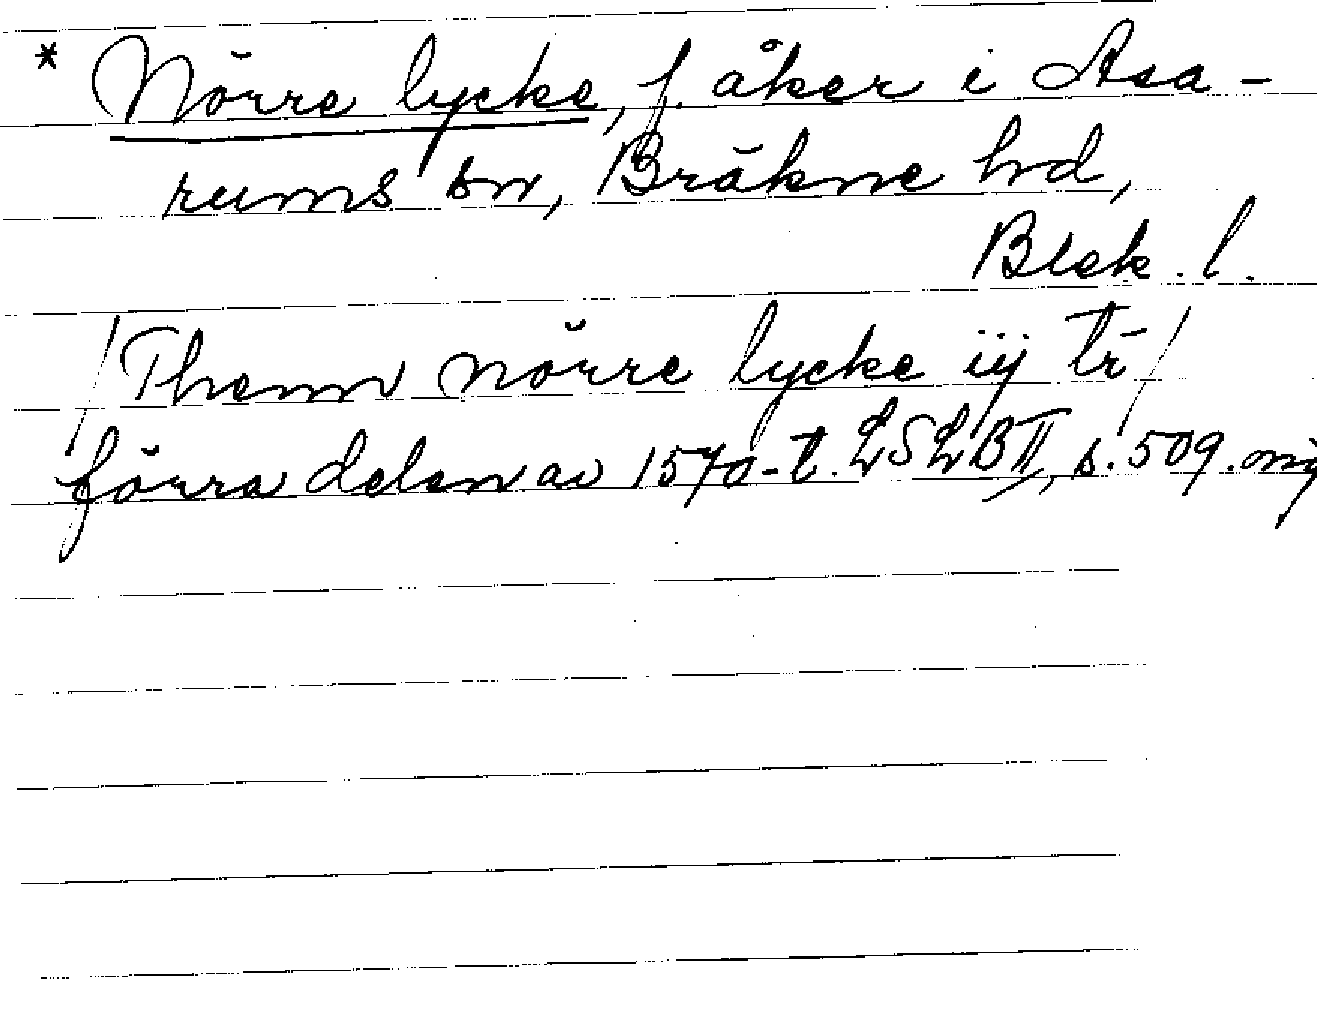 * Nörre lycke, f. åker i Asa-
rums sn, Bräkne hd,
Blek. l.
/Themn nörre lycke iij tr/
förra delen av 1570-t. LSLB II, s. 509.